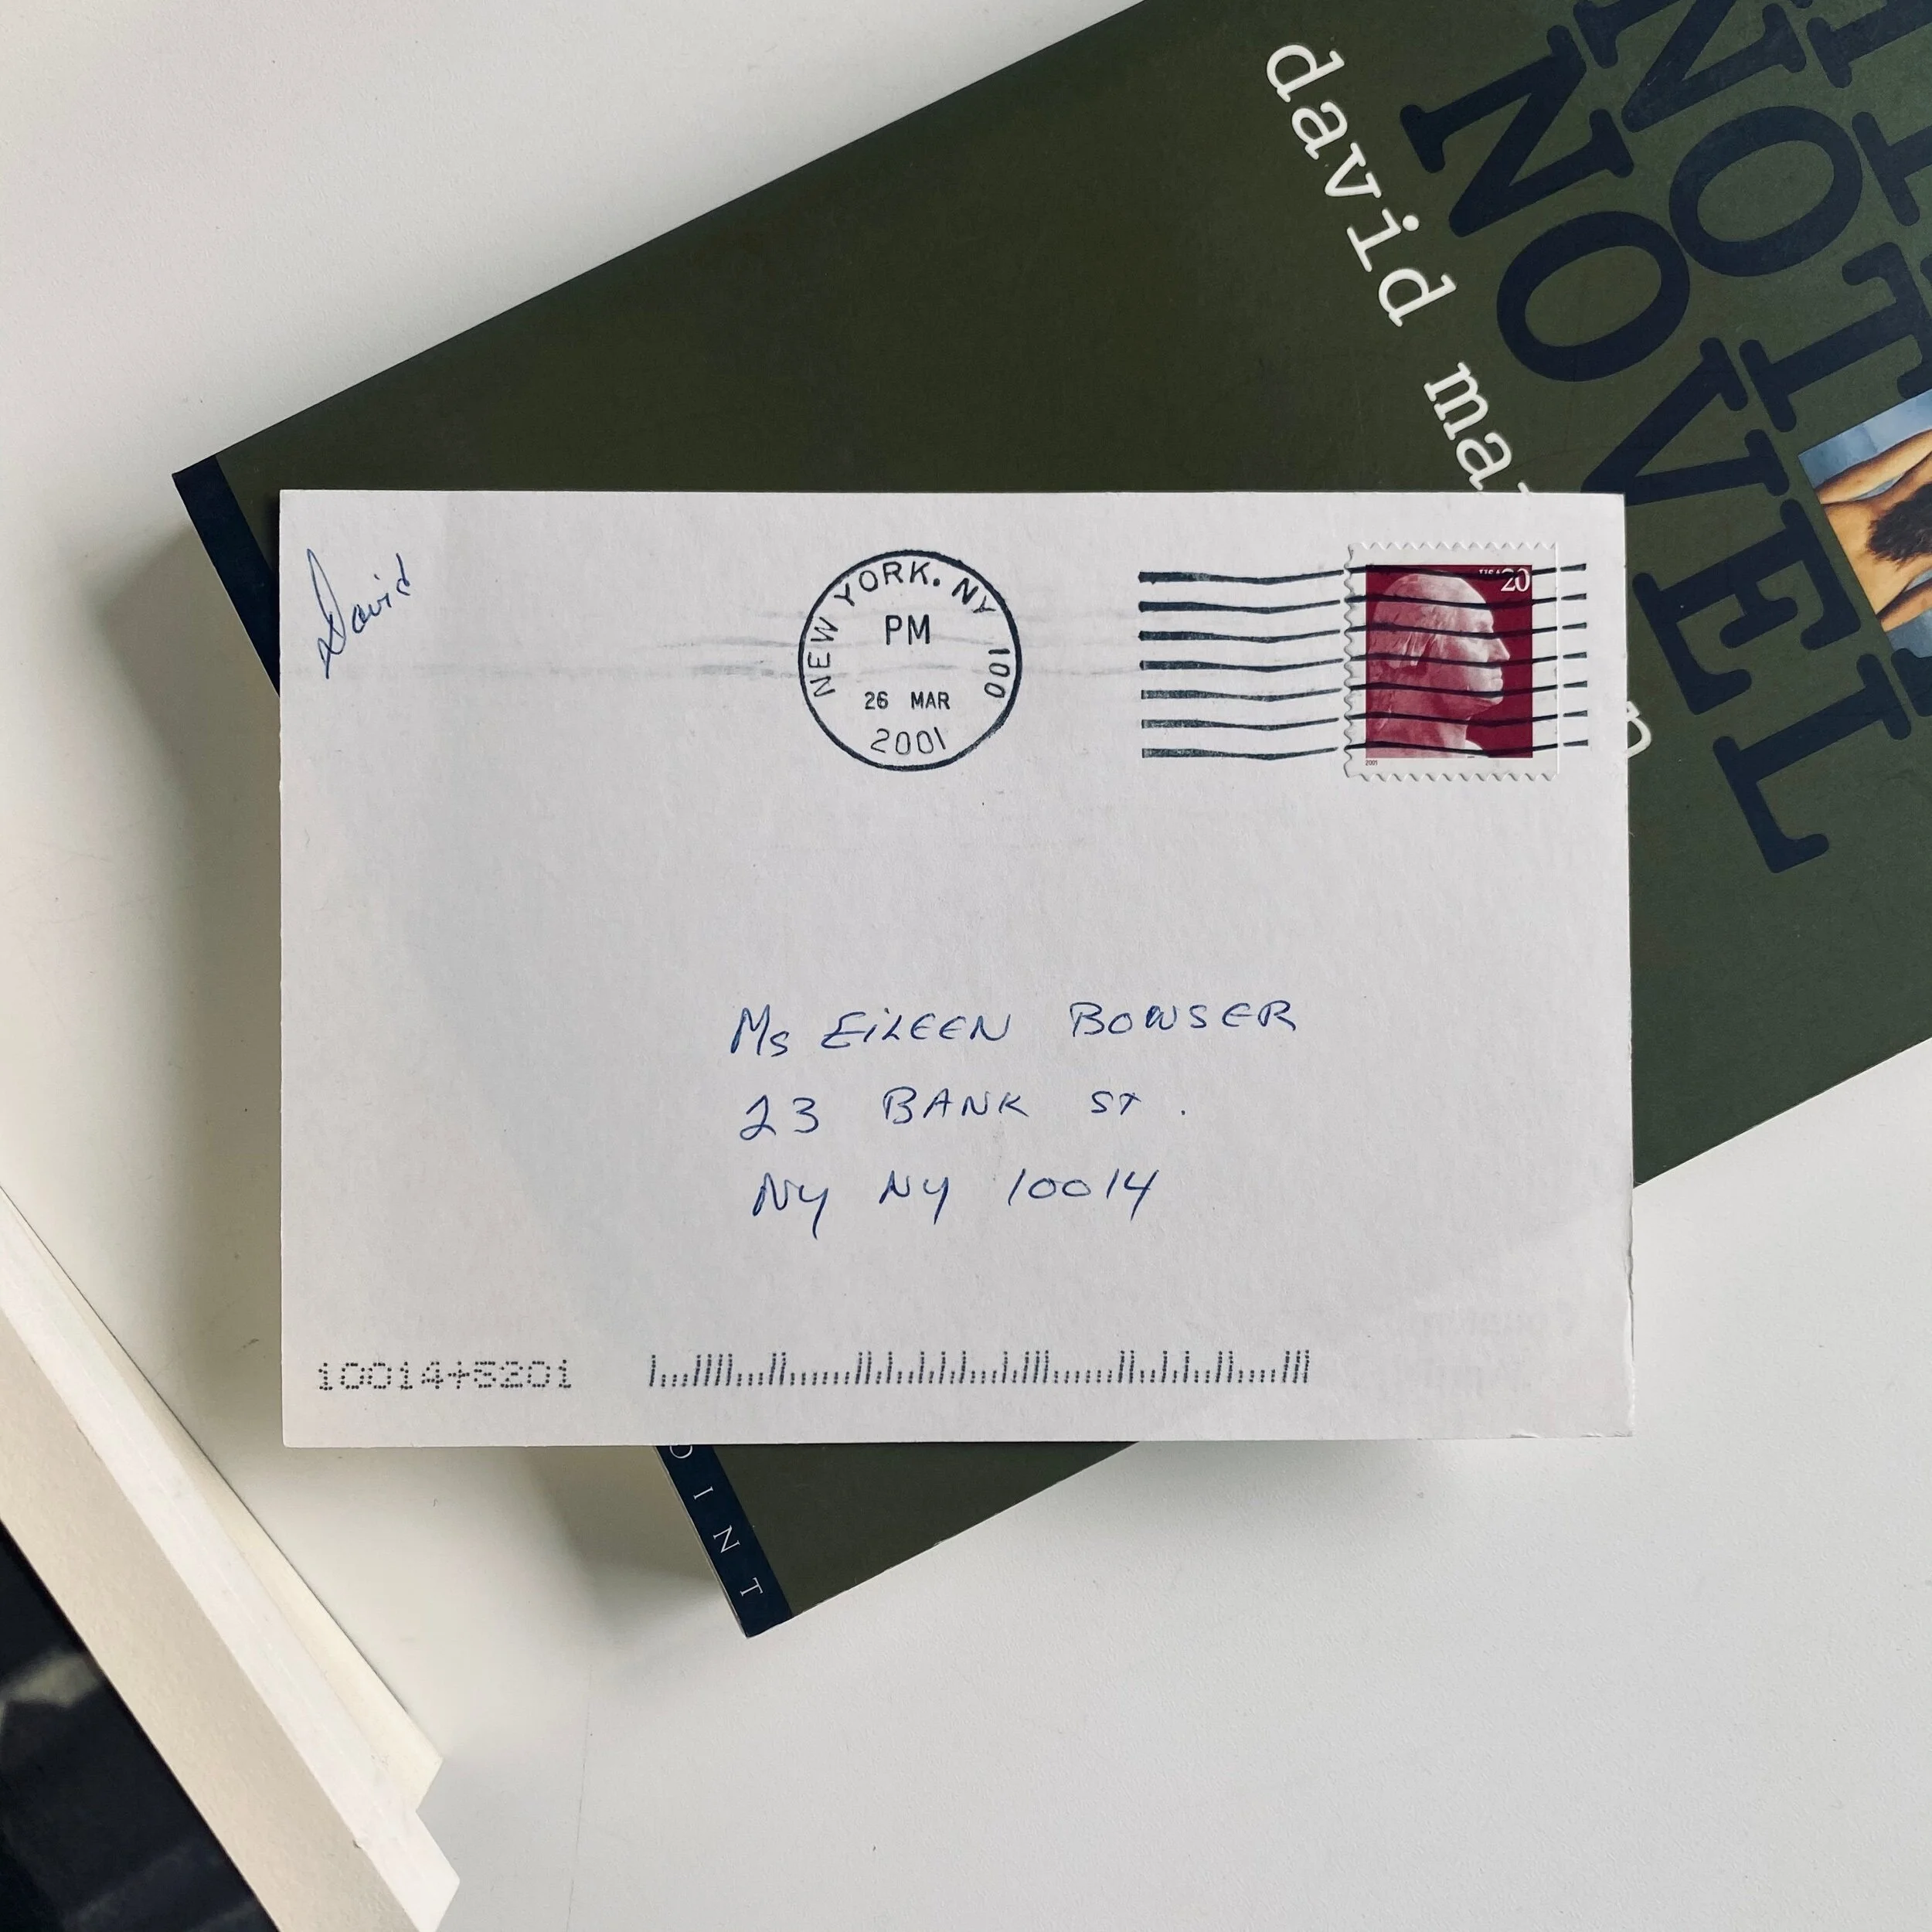 david ma
NOT
NOVEL
n
David
NEW YORK. NY 100
PM
26 MAR
2001
USA 20
2001
Ms EiLEEN BOWSER
23 BANK ST.
NY NY 10014
10014+5201
OINT